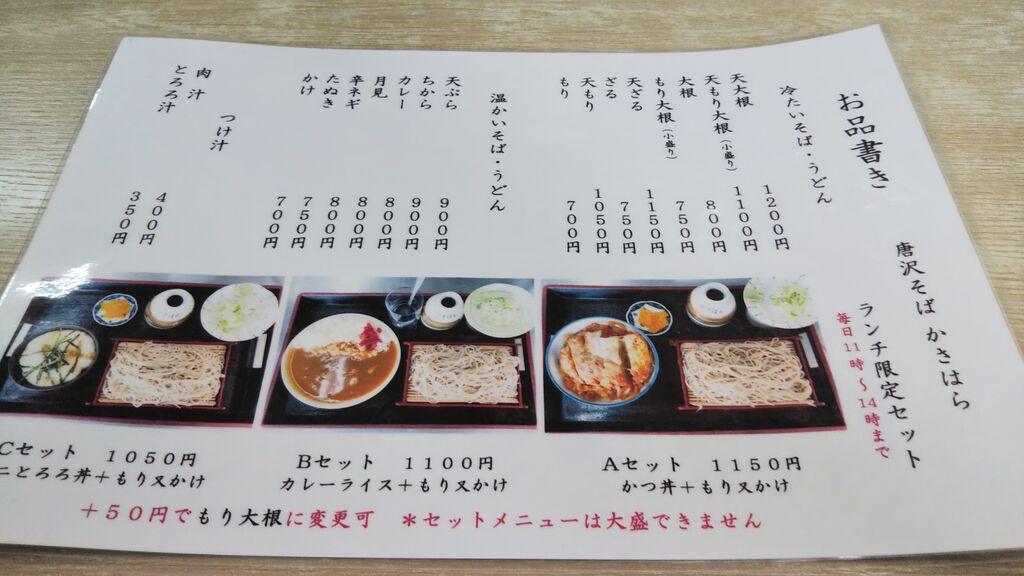 お品書き
唐沢そば かさはら
ランチ限定セット
毎日11時～14時まで
冷たいそば・うどん
天大根 1200円
天もり大根(小盛り) 1100円
大根 800円
もり大根(小盛り) 750円
天ざる 1150円
ざる 750円
天もり 1050円
もり 700円
温かいそば・うどん
天ぷら 900円
ちから 900円
カレー 800円
月見 800円
辛ネギ 800円
たぬき 750円
かけ 700円
つけ汁
肉汁 400円
とろろ汁 350円
Aセット 1150円
かつ丼＋もり又かけ
Bセット 1100円
カレーライス＋もり又かけ
Cセット 1050円
ニとろろ丼＋もり又かけ
＋50円でもり大根に変更可 ＊セットメニューは大盛できません